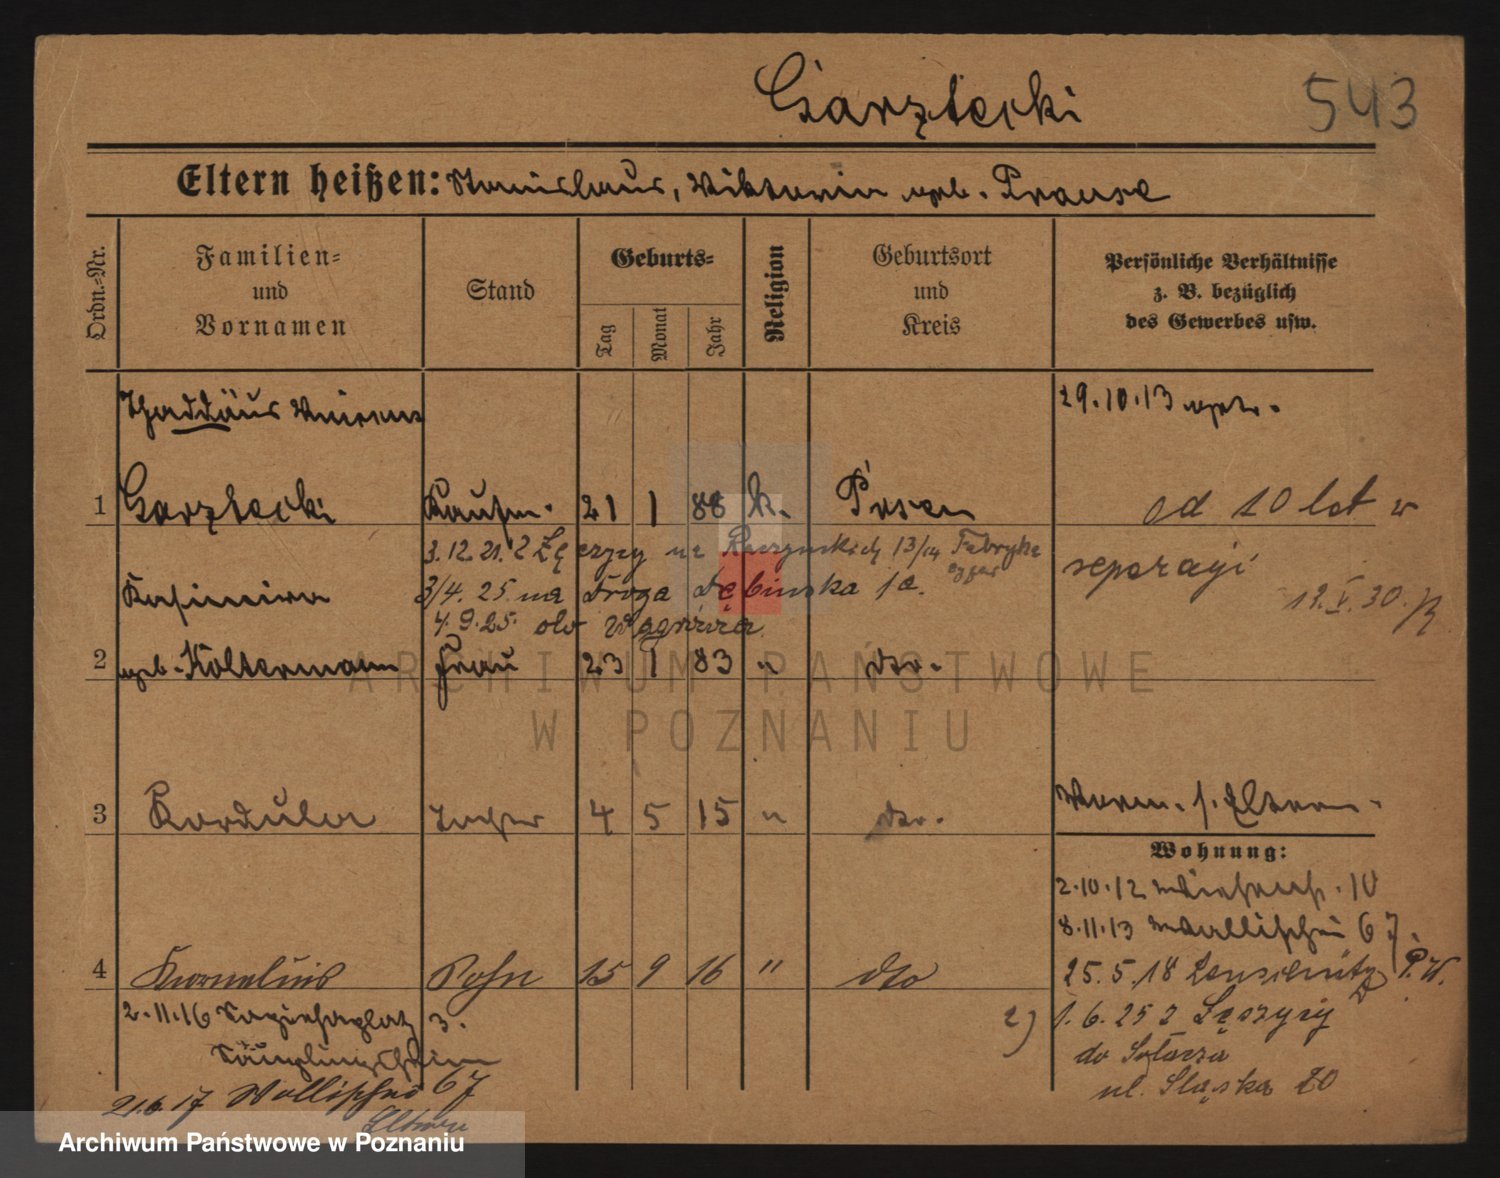 Garztecki 543
Eltern heißen: Stanislaus, Viktoria geb. Prause
Ordn.-Nr.
Familien-
und
Vornamen
Stand
Geburts-
Tag
Monat
Jahr
Religion
Geburtsort
und
Kreis
Persönliche Verhältnisse
z. B. bezüglich
des Gewerbes usw.
Thaddäus 29.10.13
1 Garztecki Kaufm. 21 1 88 k. Posen
od 10 lat w
separacji
12.V.30.
3.12.21. Z Łęczycy na 13/14 Fabryka
Kasimira 3/4. 25 na Droga Dębinska 1a.
4.9.25. do Wągrówca
2 geb. Koltermann Frau 23 1 83 " dto.
3 Kordula Tochter 4 5 15 " dto.
Wohnung:
2.10.12 10
8.11.13 Wallischei 67
4 Kornelius Sohn 15 9 16 " dto
25.5.18 P.W.
2.11.16 3.
Säuglingsheim
21.6.17 Wallischei 67
Eltern
2) 1.6.25 z Łęczycy
do Sołacza
ul. Śląska 20
ARCHIWUM PAŃSTWOWE
W POZNANIU
Archiwum Państwowe w Poznaniu